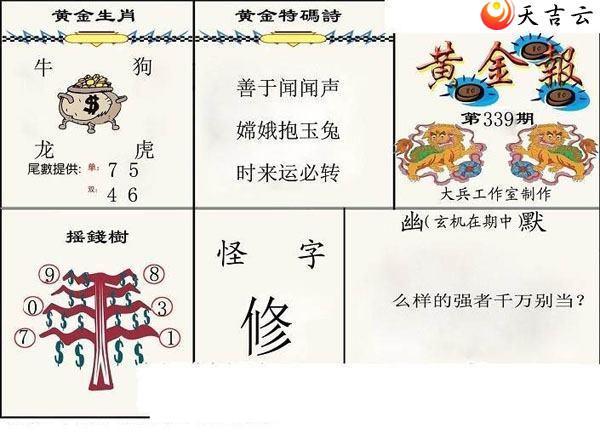 天吉云
黄金生肖
牛 狗
$
龙 虎
尾數提供: 单: 7 5
双: 4 6
黄金特碼詩
善于闻闻声
嫦娥抱玉兔
时来运必转
黄金報
第339期
大兵工作室制作
摇錢樹
9 8
0 3
7 1
$ $ $ $ $ $
怪 字
修
幽(玄机在期中)默
么样的强者千万别当?